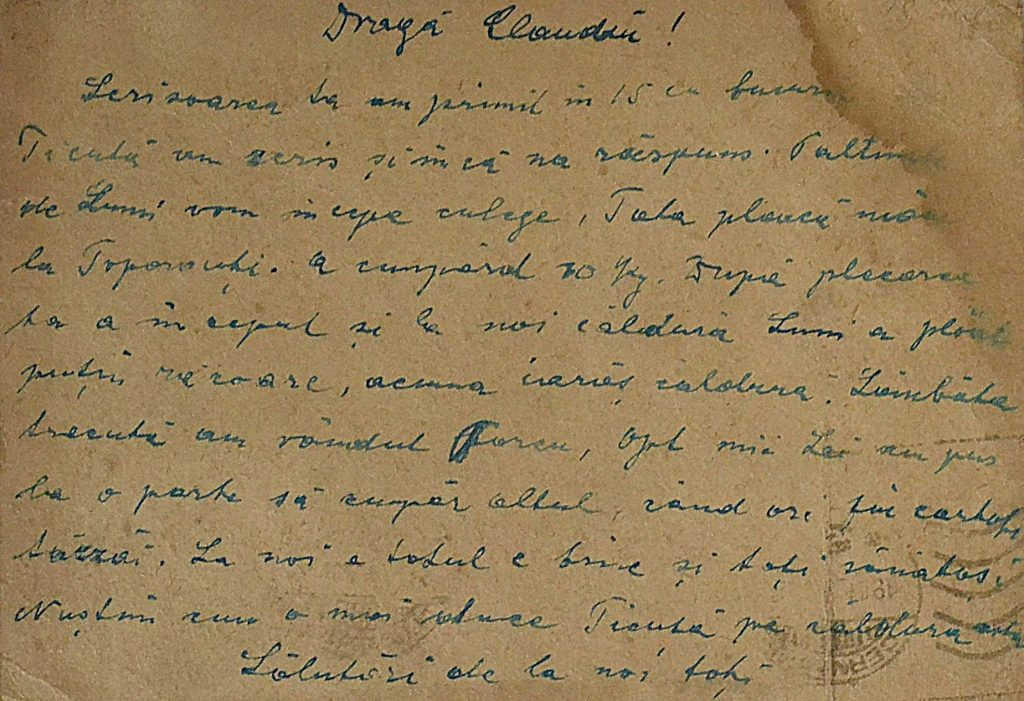 Dragă Claudiu!
Scrisoarea ta am primit in 15 cu
Ticută am scris și încă na răspuns.
de Luni vom incepe culege, Tata pleacă
la Toporouți. A cumpărd 10 Kg. După plecarea
ta a inceput și la noi căldură Luni a
puțin răcoare, acuma iarăș caldură. Sâmbăta
trecută am vândut Porcu, Opt mii Lei am pus
la o parte să cumpăr altul, când ori fii cartofi
tărzăi. La noi e totul e bine și toți sănătoși
Nuștiu cum o mai duce Ticută pe caldura asta
Sălutări de la noi toți